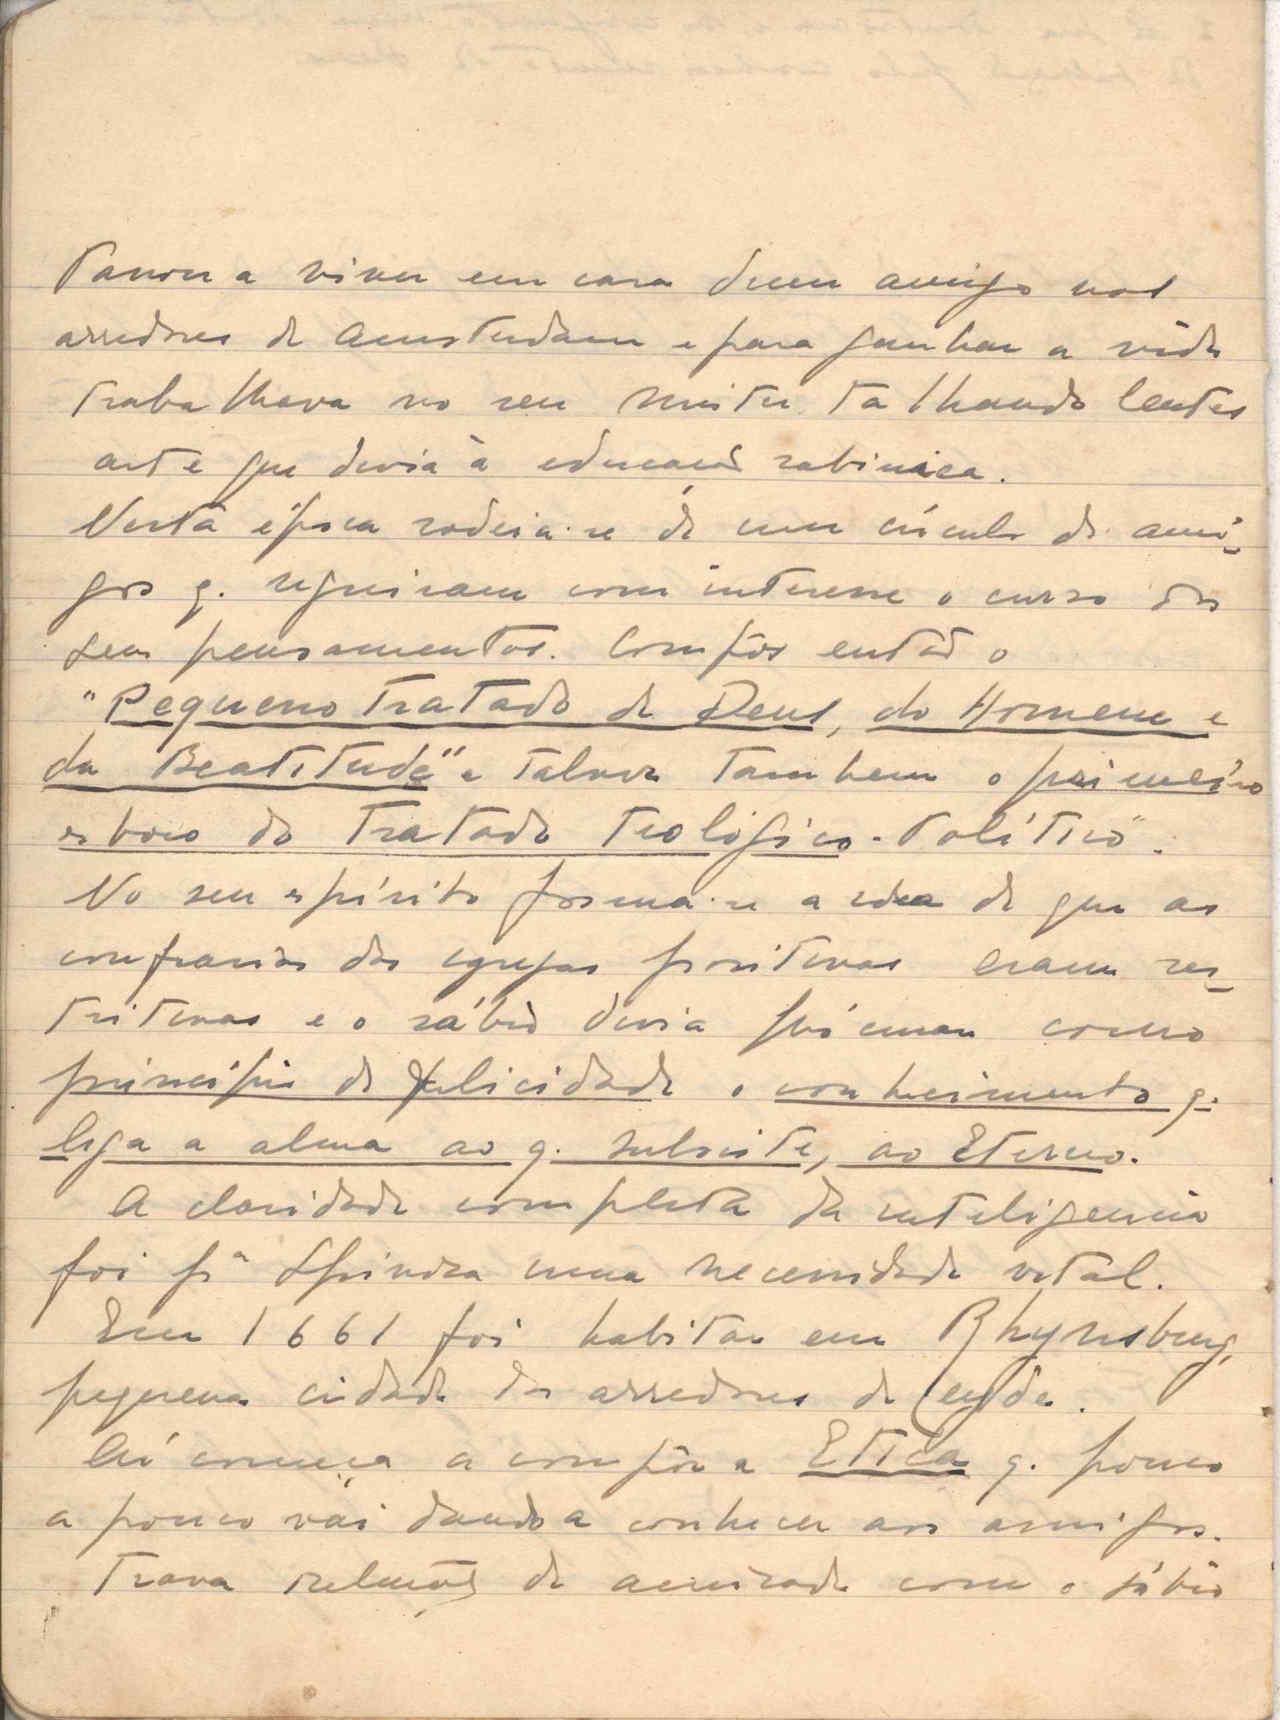 Passou a viver em casa dum amigo nos
arredores de Amsterdam e para ganhar a vida
trabalhava no seu mister talhando lentes
arte que devia à educação rabinica.
Nesta época rodeia-se de um círculo de ami-
gos q. seguiram com interesse o curso dos
seus pensamentos. Compôs então o
"Pequeno Tratado de Deus, do Homem e
da Beatitude" e talvez tambem o primeiro
esboço do Tratado Teológico-Politico".
No seu espírito forma-se a idea de que as
confrarias das egrejas positivas eram res-
tritivas e o sábio devia procurar como
principio de felicidade o conhecimento q.
liga a alma ao q. subsiste, ao Eterno.
A claridade completa da inteligencia
foi pª Spinoza uma necessidade vital.
Em 1661 foi habitar em Rhynsburg,
pequena cidade dos arredores de Leyde.
Aí começa a compôr a Etica q. pouco
a pouco vai dando a conhecer aos amigos.
Trava relações de amizade com o sábio